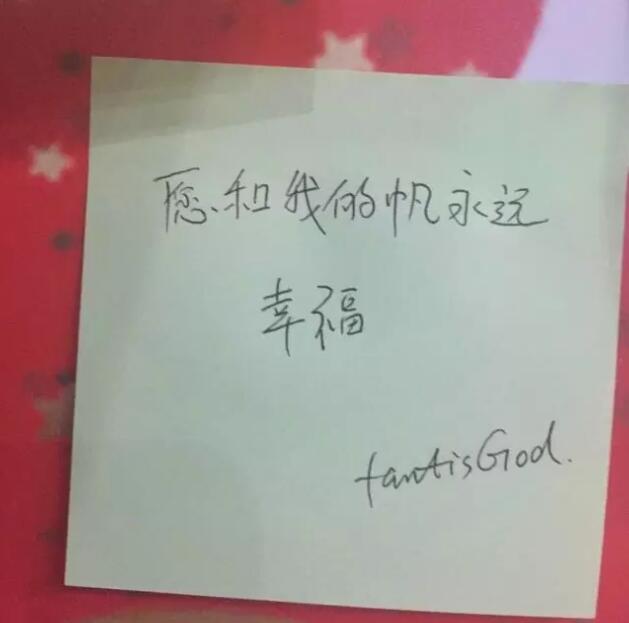 愿和我的帆永远
幸福
tantisGod.